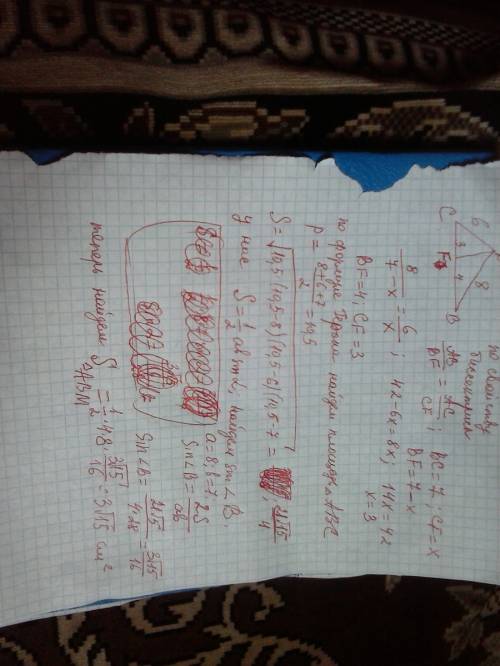 по свойству
биссектрисы
A
6
8
C
3
F
4
B
AB/BF = AC/CF; BC=7; CF=x
BF=7-x
8/(7-x) = 6/x; 42-6x=8x; 14x=42
x=3
BF=4; CF=3
по формуле Герона найдём площадь ABC
P = (8+6+7)/2 = 10,5
S=√10,5(10,5-8)(10,5-6)(10,5-7) = 21√15/4
S=1/2 ab sin∠, найдём sin∠B.
a=8; b=7
sin∠B = 2S/ab
sin∠B = 21√15/4·28 = 3√15/16
теперь найдём S = 1/2·4·8·3√15/16=3√15 см²